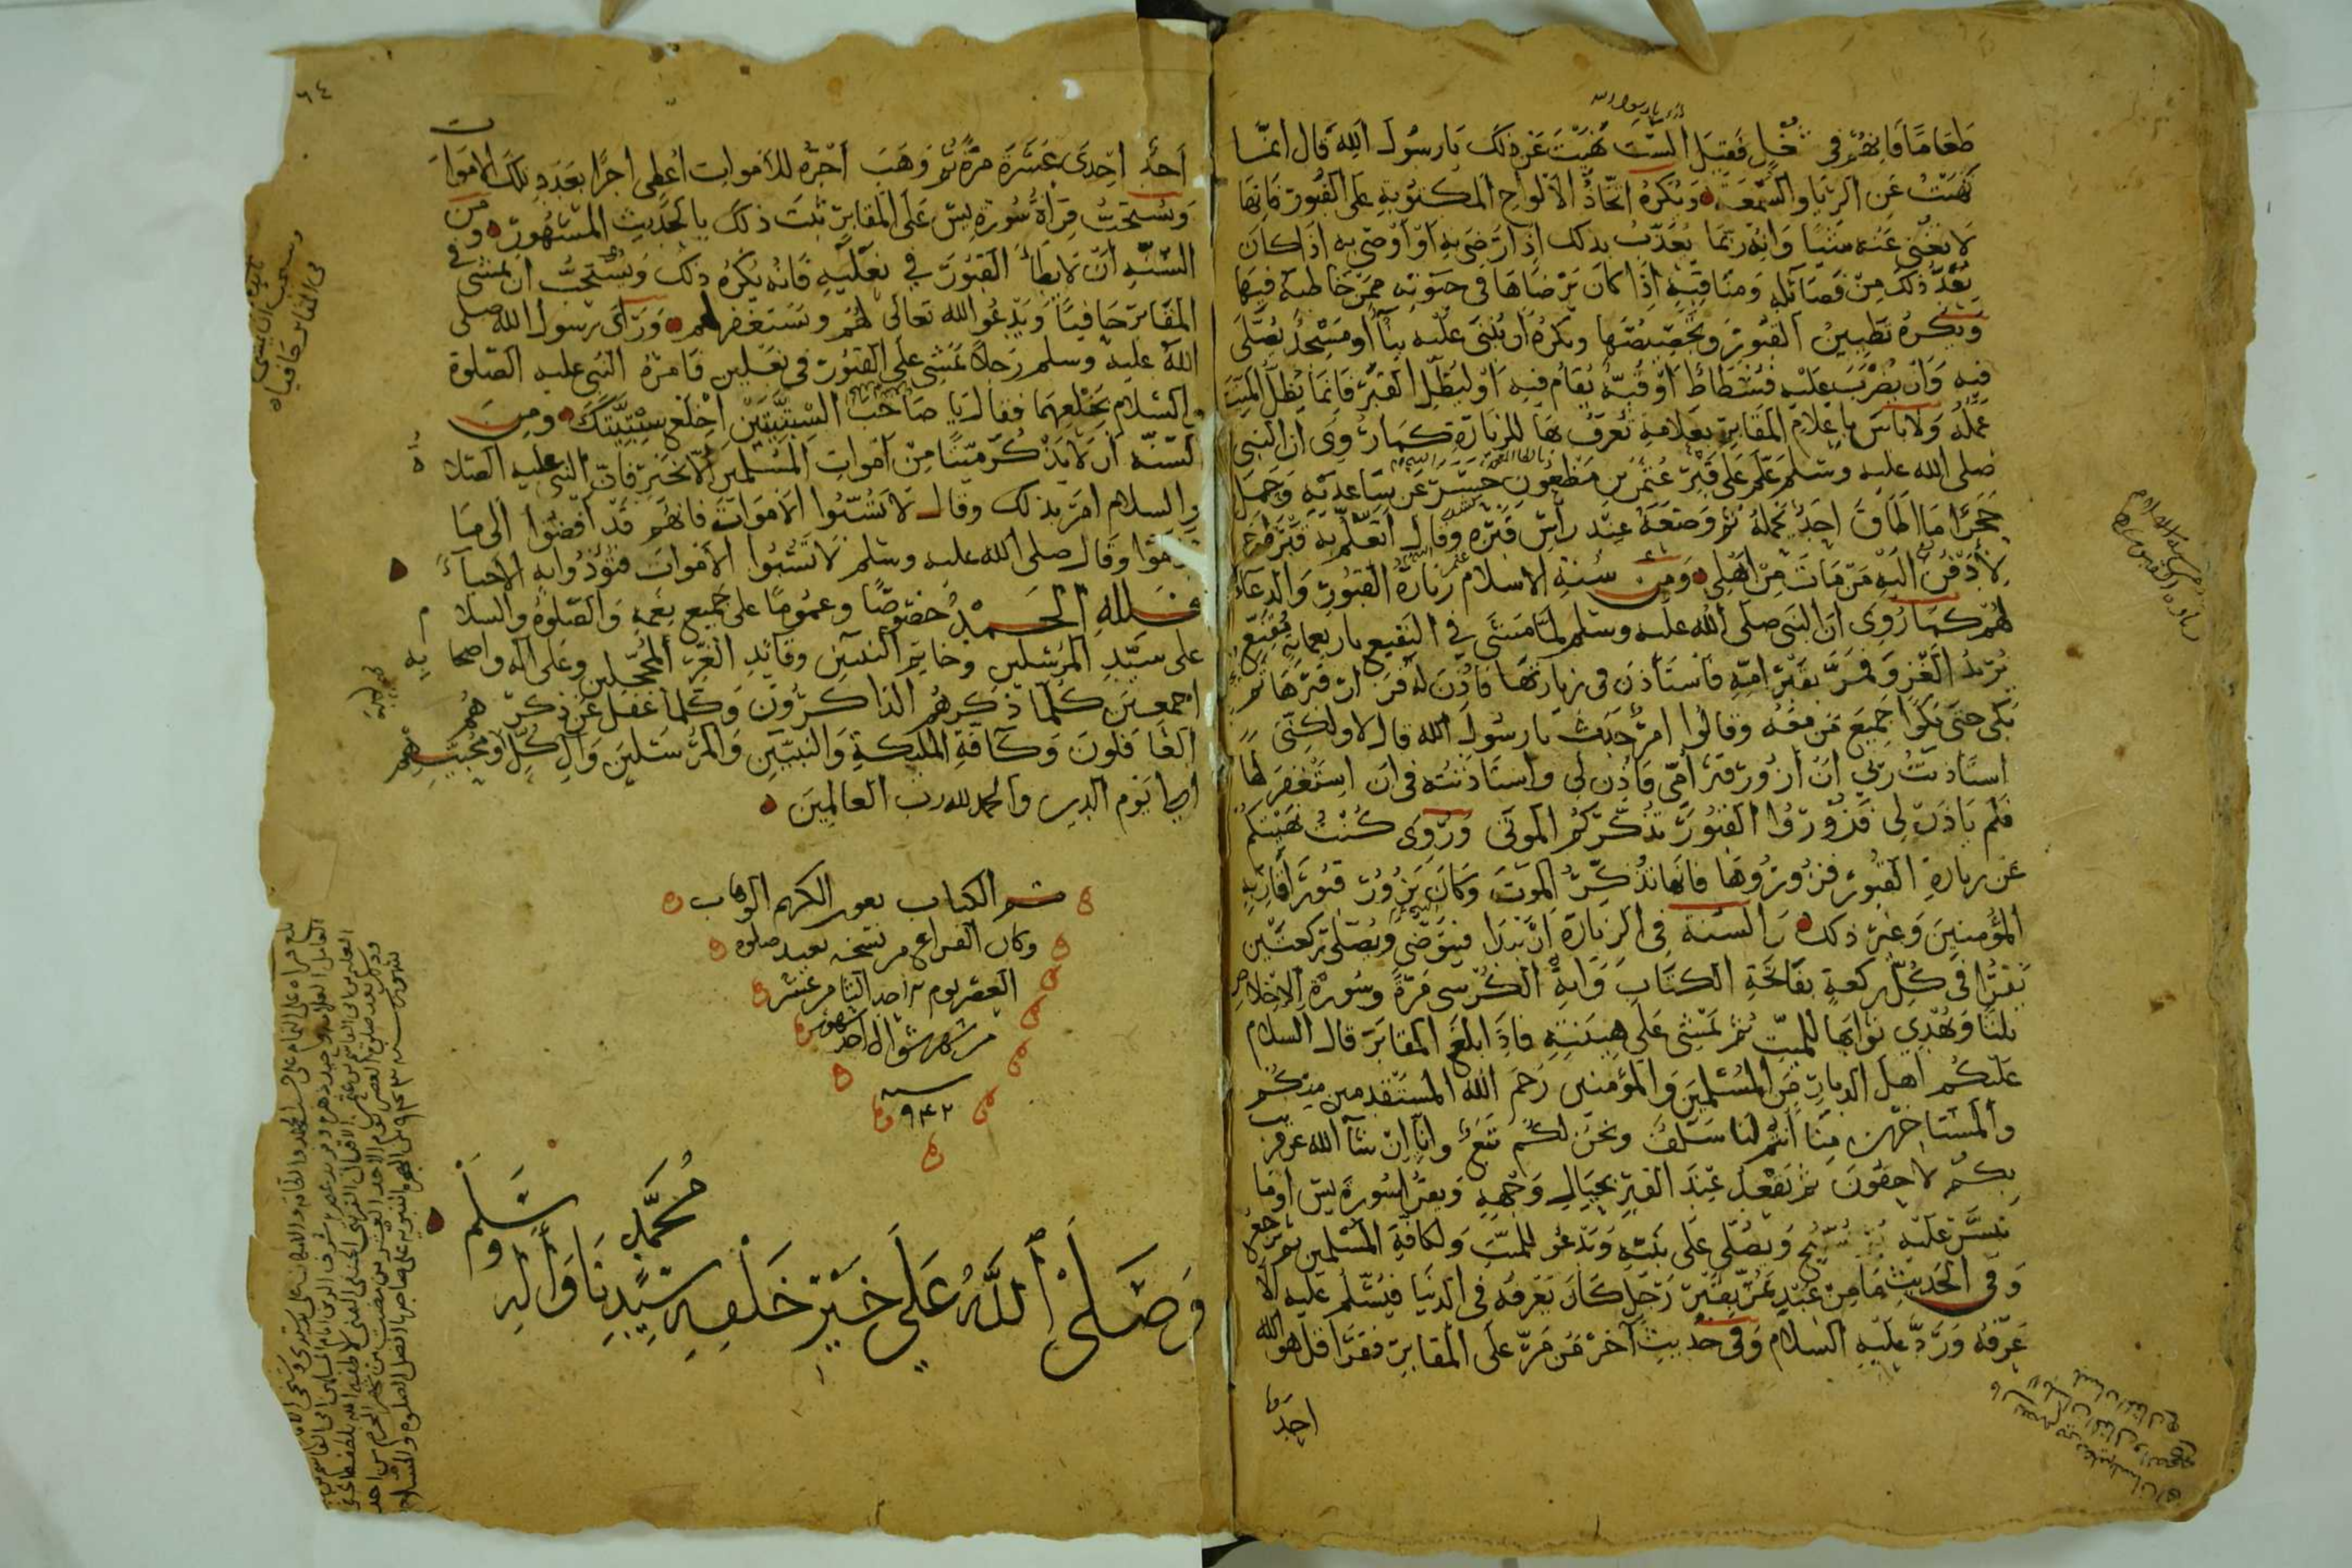 طعاما فانهم في شغل فقيل ألست نهيت عن ذلك يا رسول الله قال انما
نهيت عن الريا والسمعة ويكره اتخاذ الألواح المكتوبة على القبور فانها
لا تغني عنه شيئا وانه ربما يعذب بذلك اذا رضي به او اوصى به اذا كان
يعد ذلك من فضائله ومناقبه اذا كان يرضاها في حيوته
ويكره تطيين القبور وتجصيصها ويكره ان يبنى عليه بناء او مسجد يصلى
فيه وان يضرب عليه فسطاط او قبة يقام فيه او ليظل القبر فانما يظل الميت
عمله ولا باس باعلام المقابر بعلامة تعرف بها للزيارة كما روي ان النبي
صلى الله عليه وسلم علم على قبر عثمن بن مظعون حسر عن ساعديه وحمل
حجرا ما اطاق احد يحمله ثم وضعه عند راس قبره وقال اتعلم به قبر اخي
لأدفن اليه من مات من اهلي ومن سنة الاسلام زيارة القبور والدعاء
لهم كما روي ان النبي صلى الله عليه وسلم لما مشى في البقيع باربعماية مقنع
يريد الغزو فمر بقبر امه فاستأذن في زيارتها فاذن له فزار قبرها ثم
بكى حتى بكوا جميع من معه وقالوا امر حدث يا رسول الله قال لا ولكني
استاذنت ربي ان ازور قبر امي فاذن لي واستاذنته في ان استغفر لها
فلم ياذن لي فزوروا القبور تذكركم الموتى وروي كنت نهيتكم
عن زيارة القبور فزوروها فانها تذكر الموت وكان يزور قبور اقاربه
المؤمنين وغير ذلك والسنة في الزيارة ان يبدا فيتوضى ويصلى ركعتين
يقرا في كل ركعة بفاتحة الكتاب وآية الكرسي مرة وسورة الاخلاص
ثلثا ويهدي ثوابها للميت ثم يمشى على هينته فاذا بلغ المقابر قال السلام
عليكم اهل الديار من المسلمين والمؤمنين رحم الله المستقدمين منكم
والمستاخرين منا انتم لنا سلف ونحن لكم تبع وانا ان شآ الله عن قريب
بكم لاحقون ثم يقعد عند القبر بحيال وجهه ويقرا سورة يس او ما
تيسر عليه ثم يسبح ويصلى على نبيه ويدعو للميت ولكافة المسلمين ثم يرجع
وفي الحديث ما من عبد يمر بقبر رجل كان يعرفه في الدنيا فيسلم عليه الا
عرفه ورد عليه السلام وفي حديث آخر من مر على المقابر فقرا قل هو الله
احد
٦٤
احد احدى عشرة مرة ثم وهب اجره للاموات اعطي اجرا بعدد تلك الاموات
ويستحب قراة سورة يس على المقابر ثبت ذلك بالحديث المشهور ومن
السنة ان لا يطأ القبور في نعليه فانه يكره ذلك ويستحب ان يمشى في
المقابر حافيا ويدعو الله تعالى لهم ويستغفر لهم ورأى رسول الله صلى
الله عليه وسلم رجلا يمشي على القبور في نعلين فامره النبي عليه الصلوة
والسلام بخلعهما فقال يا صاحب السبتيتين اخلع سبتيتك ومن
السنة ان لا يذكر ميتا من اموات المسلمين الا بخير فان النبي عليه الصلاة
والسلام امر بذلك وقال لا تسبوا الاموات فانهم قد افضوا الى ما
قدموا وقال صلى الله عليه وسلم لا تسبوا الاموات فتؤذوا به الاحياء
فلله الحمد خصوصا وعموما على جميع نعمه والصلوة والسلام
على سيد المرسلين وخاتم النبيين وقائد الغر المحجلين وعلى آله واصحابه
اجمعين كلما ذكرهم الذاكرون وكلما غفل عن ذكرهم
الغافلون وكافة الملئكة والنبيين والمرسلين وآل كل ومحبيهم
الى يوم الدين والحمد لله رب العالمين
تم الكتاب بعون الكريم الوهاب
وكان الفراغ من نسخه بعيد صلوة
العصر يوم الاحد الثامن عشر
من شهر شوال احد شهور
سنه ٩٤٢
وصلى الله على خير خلقه سيدنا محمد وآله وسلم